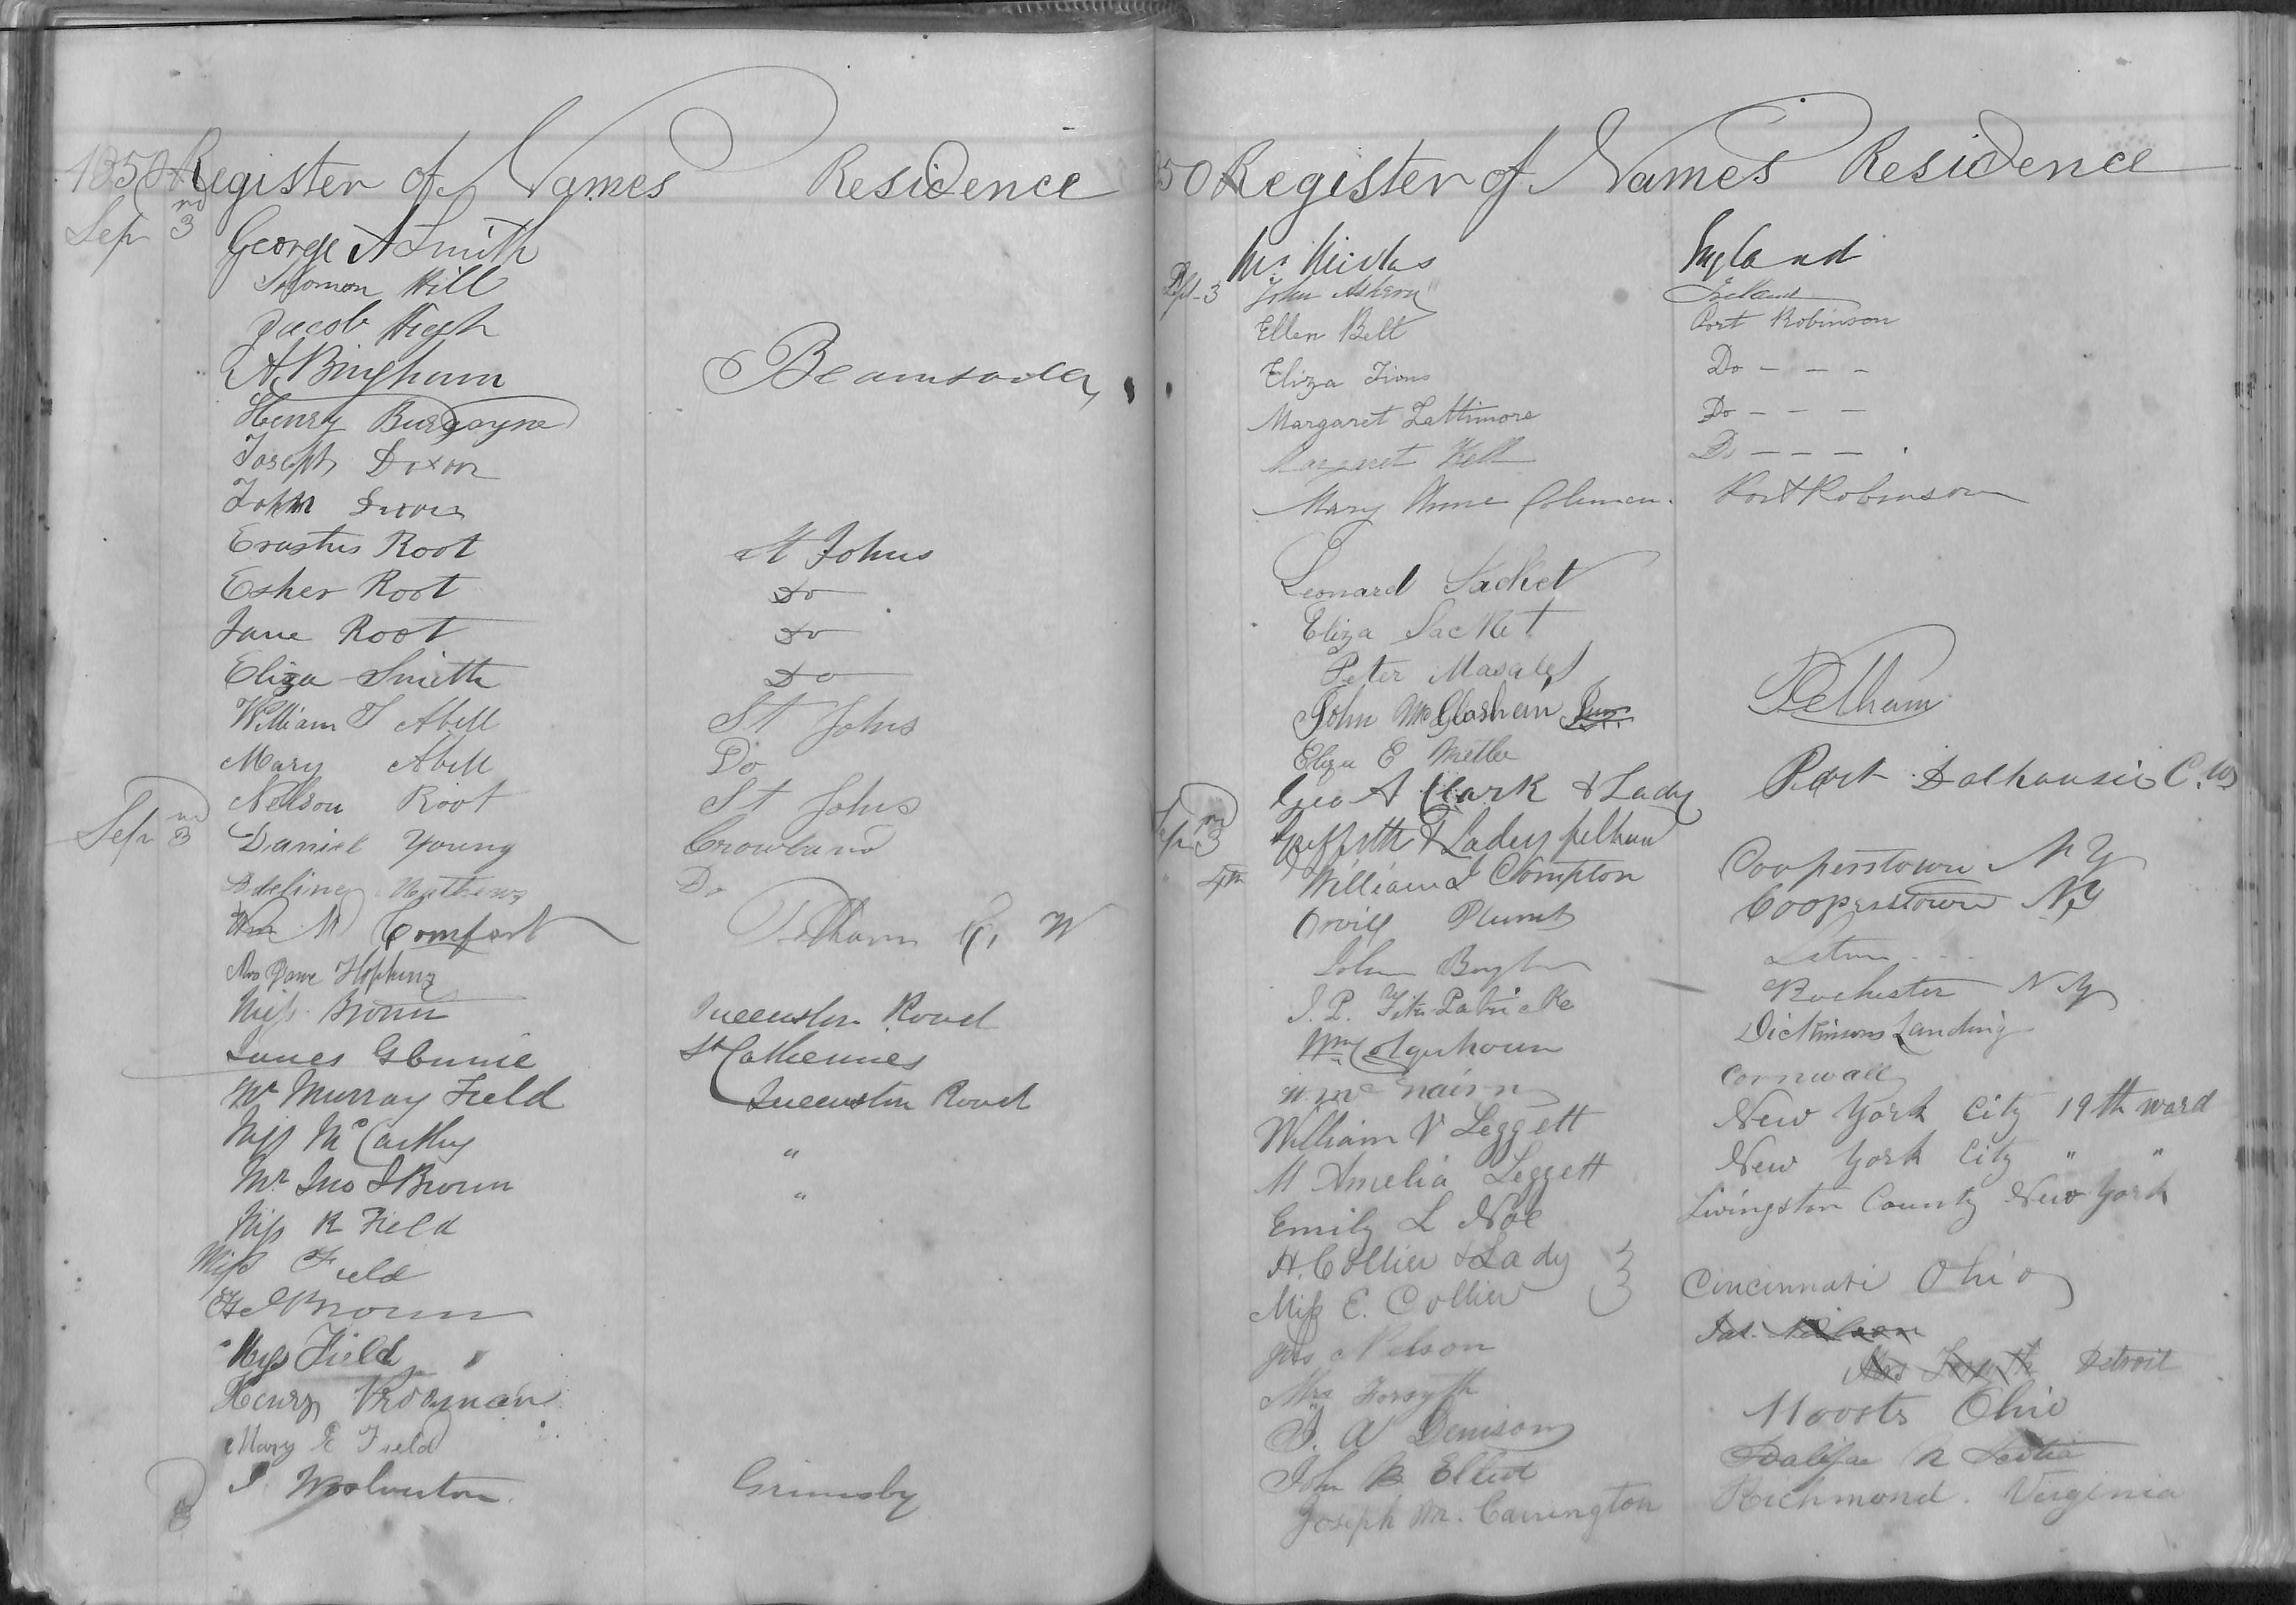 1850 Register of Names Residence
Sep 3rd George A Smith
Solomon Hill
Jacob High
A. Bingham Beamsville
Henry Burgoyne
Joseph Dixon
John
Erastus Root St Johns
Esher Root Do
Jane Root Do
Eliza Smith Do
William T Abell St Johns
Mary Abell Do
Nelson Root St Johns
Sep 3rd Daniel Young Crowland
Adeline Mathews Do
M Comfort Pelham C. W
Mrs Jane Hopkins
Miss Brown Queenston Road
James Glennie St Catherines
Mr Murray Field Queenston Road
Miss McCarthy "
Mr. Jno S Brown "
Miss R Field
Miss Field
Brown
Miss Field
Henry Vrooman
Mary E Field
J. Woolverton Grimsby
50 Register of Names Residence
Mr England
Sept 3 John Ireland
Ellen Bell Port Robinson
Eliza Do - - -
Margaret Lattimore Do - - -
Margaret Kell Do - - -
Mary Anne Coleman. Port Robinson
Leonard Sacket
Eliza Sacket
Peter
John McGlashan Junr. Pelham
Eliza E Metler
Geo A Clark & Lady Port Dalhousie C. W
Sep 3rd Griffith & Lady pelham
4th William J Compton Cooperstown N Y
Orvill Plumb Cooperstown NY
John
J. P. Fitz Patricke Rochester N Y
Wm Colquhoun Dickinsons Landing
Cornwall
William V Leggett New York City 19th ward
M Amelia Leggett New York City " "
Emily L Noe Livingston County New York
H. Collier & Lady
Miss E. Collier Cincinnati Ohio
Jas Nelson Jas. Nelson
Mrs Forsyth Mrs Forsyth Detroit
J. A Denison Ohio
John B Elliot Halifax N Scotia
Joseph M. Carrington Richmond. Virginia